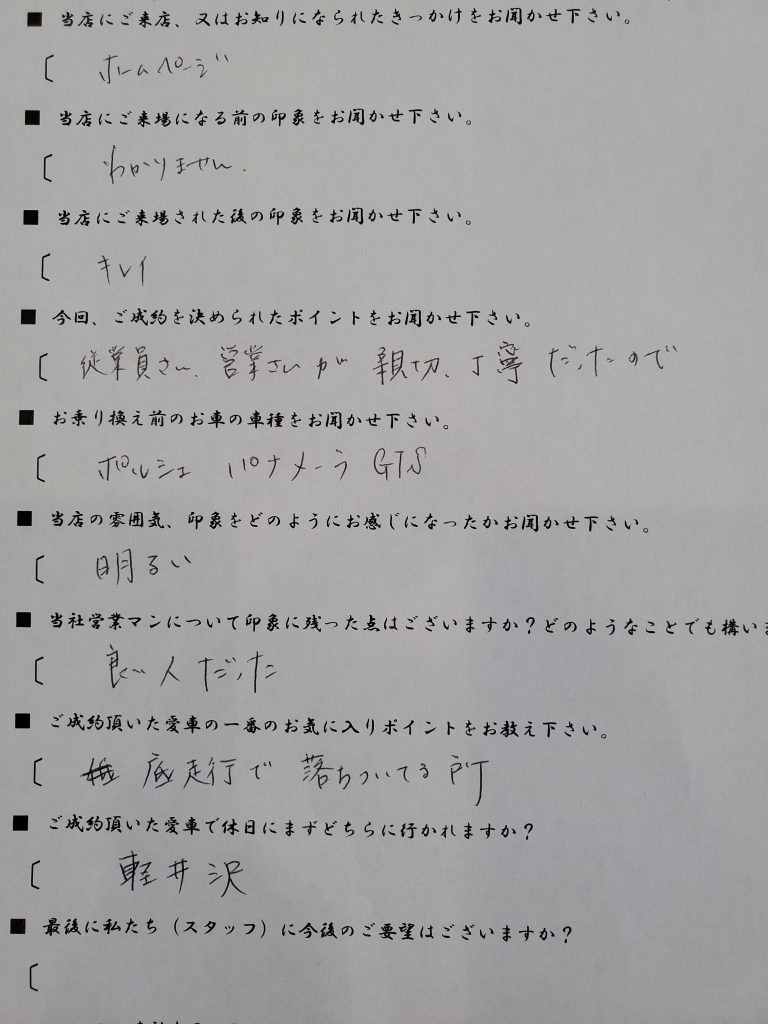 ■ 当店にご来店、又はお知りになられたきっかけをお聞かせ下さい。
〔 ホームページ
■ 当店にご来場になる前の印象をお聞かせ下さい。
〔 わかりません.
■ 当店にご来場された後の印象をお聞かせ下さい。
〔 キレイ
■ 今回、ご成約を決められたポイントをお聞かせ下さい。
〔 従業員さん、営業さんが 親切、丁寧 だったので
■ お乗り換え前のお車の車種をお聞かせ下さい。
〔 ポルシェ パナメーラ GTS
■ 当店の雰囲気、印象をどのようにお感じになったかお聞かせ下さい。
〔 明るい
■ 当社営業マンについて印象に残った点はございますか？どのようなことでも構いま
〔 良い人だった
■ ご成約頂いた愛車の一番のお気に入りポイントをお教え下さい。
〔 底走行で 落ちついてる所
■ ご成約頂いた愛車で休日にまずどちらに行かれますか？
〔 軽井沢
■ 最後に私たち（スタッフ）に今後のご要望はございますか？
〔